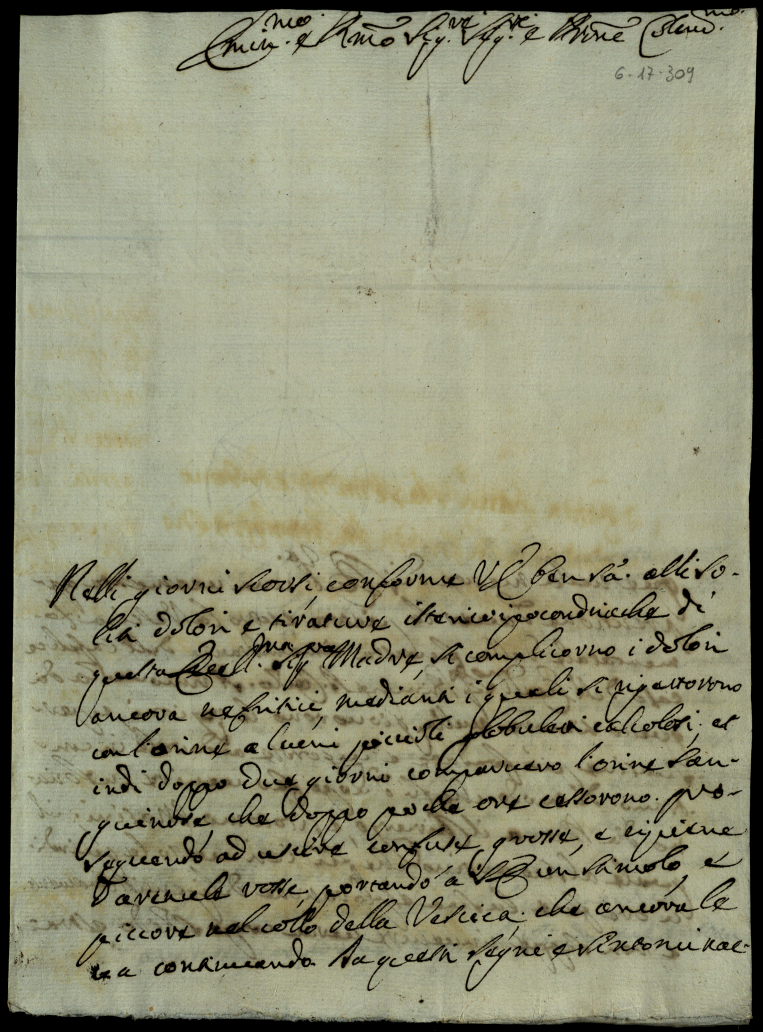 Emin.mo e Rmo Sig.re Sig.re e Prone Colend.mo
6-17-309
Nelli giorni scorsi, conforme VE ben sà. alli so-
liti dolori e tirature istericoipocondriache di
questa Ecc.ma Sig.ra Madre, si complicorno i dolori
ancora nefritici, medianti i quali si riportorono
con l'orine alcuni piccioli globuletti calcolosi; et
indi doppo due giorni comparvero l'orine san-
guinose, che doppo poche ore cessorono. pro-
seguendo ad uscire confuse, grosse, e ripiene
d'arenule rosse, portando à SE un stimolo, e
piccore nel collo della Vescica: che ancora le
và continuando. Da questi segni e sintomi rac-